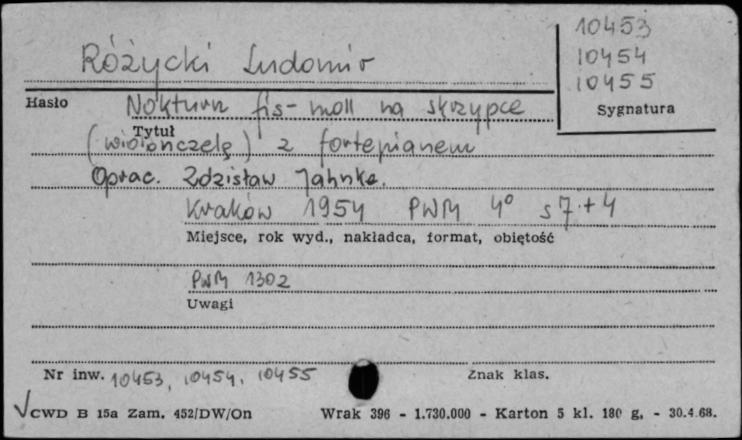 10453
Różycki Ludomir
10454
10455
Hasło
Nokturn fis-moll na skrzypce
Sygnatura
Tytuł
(wiolonczelę) z fortepianem
Oprac. Zdzisław Jahnke.
Kraków 1954 PWM 4° s 7 + 4
Miejsce, rok wyd., nakładca, format, objętość
PWM 1302
Uwagi
Nr inw. 10453, 10454, 10455
Znak klas.
CWD B 15a Zam. 452/DW/On Wrak 396 - 1.730.000 - Karton 5 kl. 180 g, - 30.4.68.